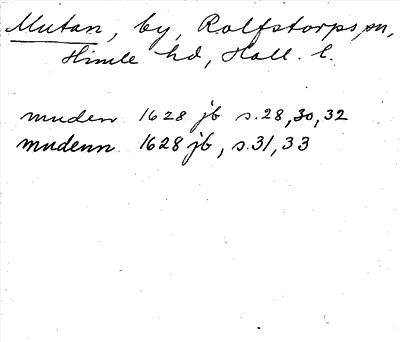 Mutan, by, Rolfstorps sn,
Himle hd, Hall. l.
muden 1628 jb s. 28, 30, 32
mudenn 1628 jb, s. 31, 33